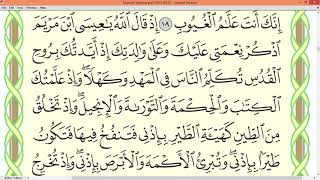 إِنَّكَ أَنتَ عَلَّٰمُ ٱلۡغُيُوبِ إِذۡ قَالَ ٱللَّهُ يَٰعِيسَى ٱبۡنَ مَرۡيَمَ
ٱذۡكُرۡ نِعۡمَتِي عَلَيۡكَ وَعَلَىٰ وَٰلِدَتِكَ إِذۡ أَيَّدتُّكَ بِرُوحِ
ٱلۡقُدُسِ تُكَلِّمُ ٱلنَّاسَ فِي ٱلۡمَهۡدِ وَكَهۡلٗاۖ وَإِذۡ عَلَّمۡتُكَ
ٱلۡكِتَٰبَ وَٱلۡحِكۡمَةَ وَٱلتَّوۡرَىٰةَ وَٱلۡإِنجِيلَۖ وَإِذۡ تَخۡلُقُ
مِنَ ٱلطِّينِ كَهَيۡـَٔةِ ٱلطَّيۡرِ بِإِذۡنِي فَتَنفُخُ فِيهَا فَتَكُونُ
طَيۡرَۢا بِإِذۡنِيۖ وَتُبۡرِئُ ٱلۡأَكۡمَهَ وَٱلۡأَبۡرَصَ بِإِذۡنِيۖ وَإِذۡ تُخۡرِجُ